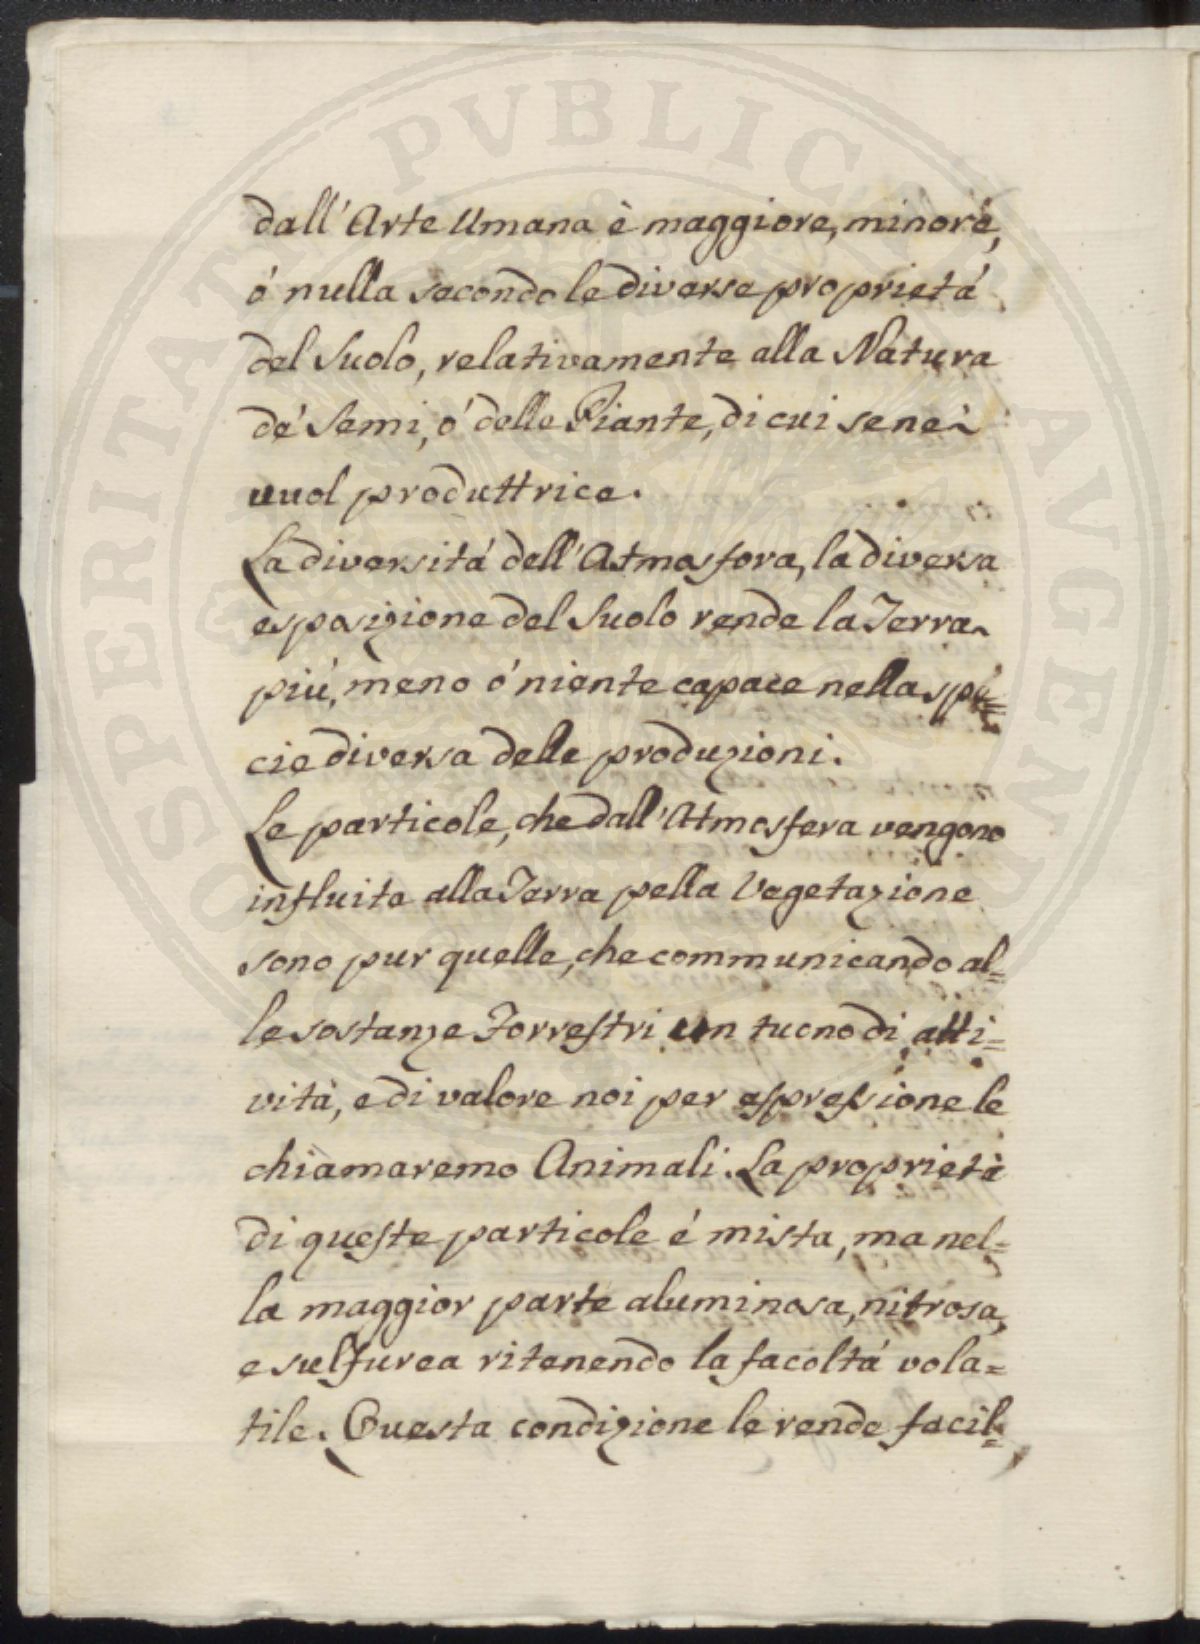 dall'Arte Umana è maggiore, minore,
ó nulla secondo le diverse proprietá
del Suolo, relativamente alla Natura
dé Semi, ó delle Piante, di cui se ne
vuol produttrice.
La diversitá dell'Atmosfera, la diversa
esposizione del Suolo rende la Terra
piú, meno ó niente capace nella spe=
cie diversa delle produzioni.
Le particole, che dall'Atmosfera vengono
influite alla Terra pella Vegetazione
sono pur quelle, che communicando al=
le sostanze Terrestri un tueno di atti=
vitá, e di valore noi per espressione le
chiamaremo Animali. La proprietá
di queste particole é mista, ma nel=
la maggior parte aluminosa, nitrosa,
e sulfurea ritenendo la facoltá vola=
tile. Questa condizione le rende facil=
PUBLICAE
AUGENDAE
PROSPERITATI